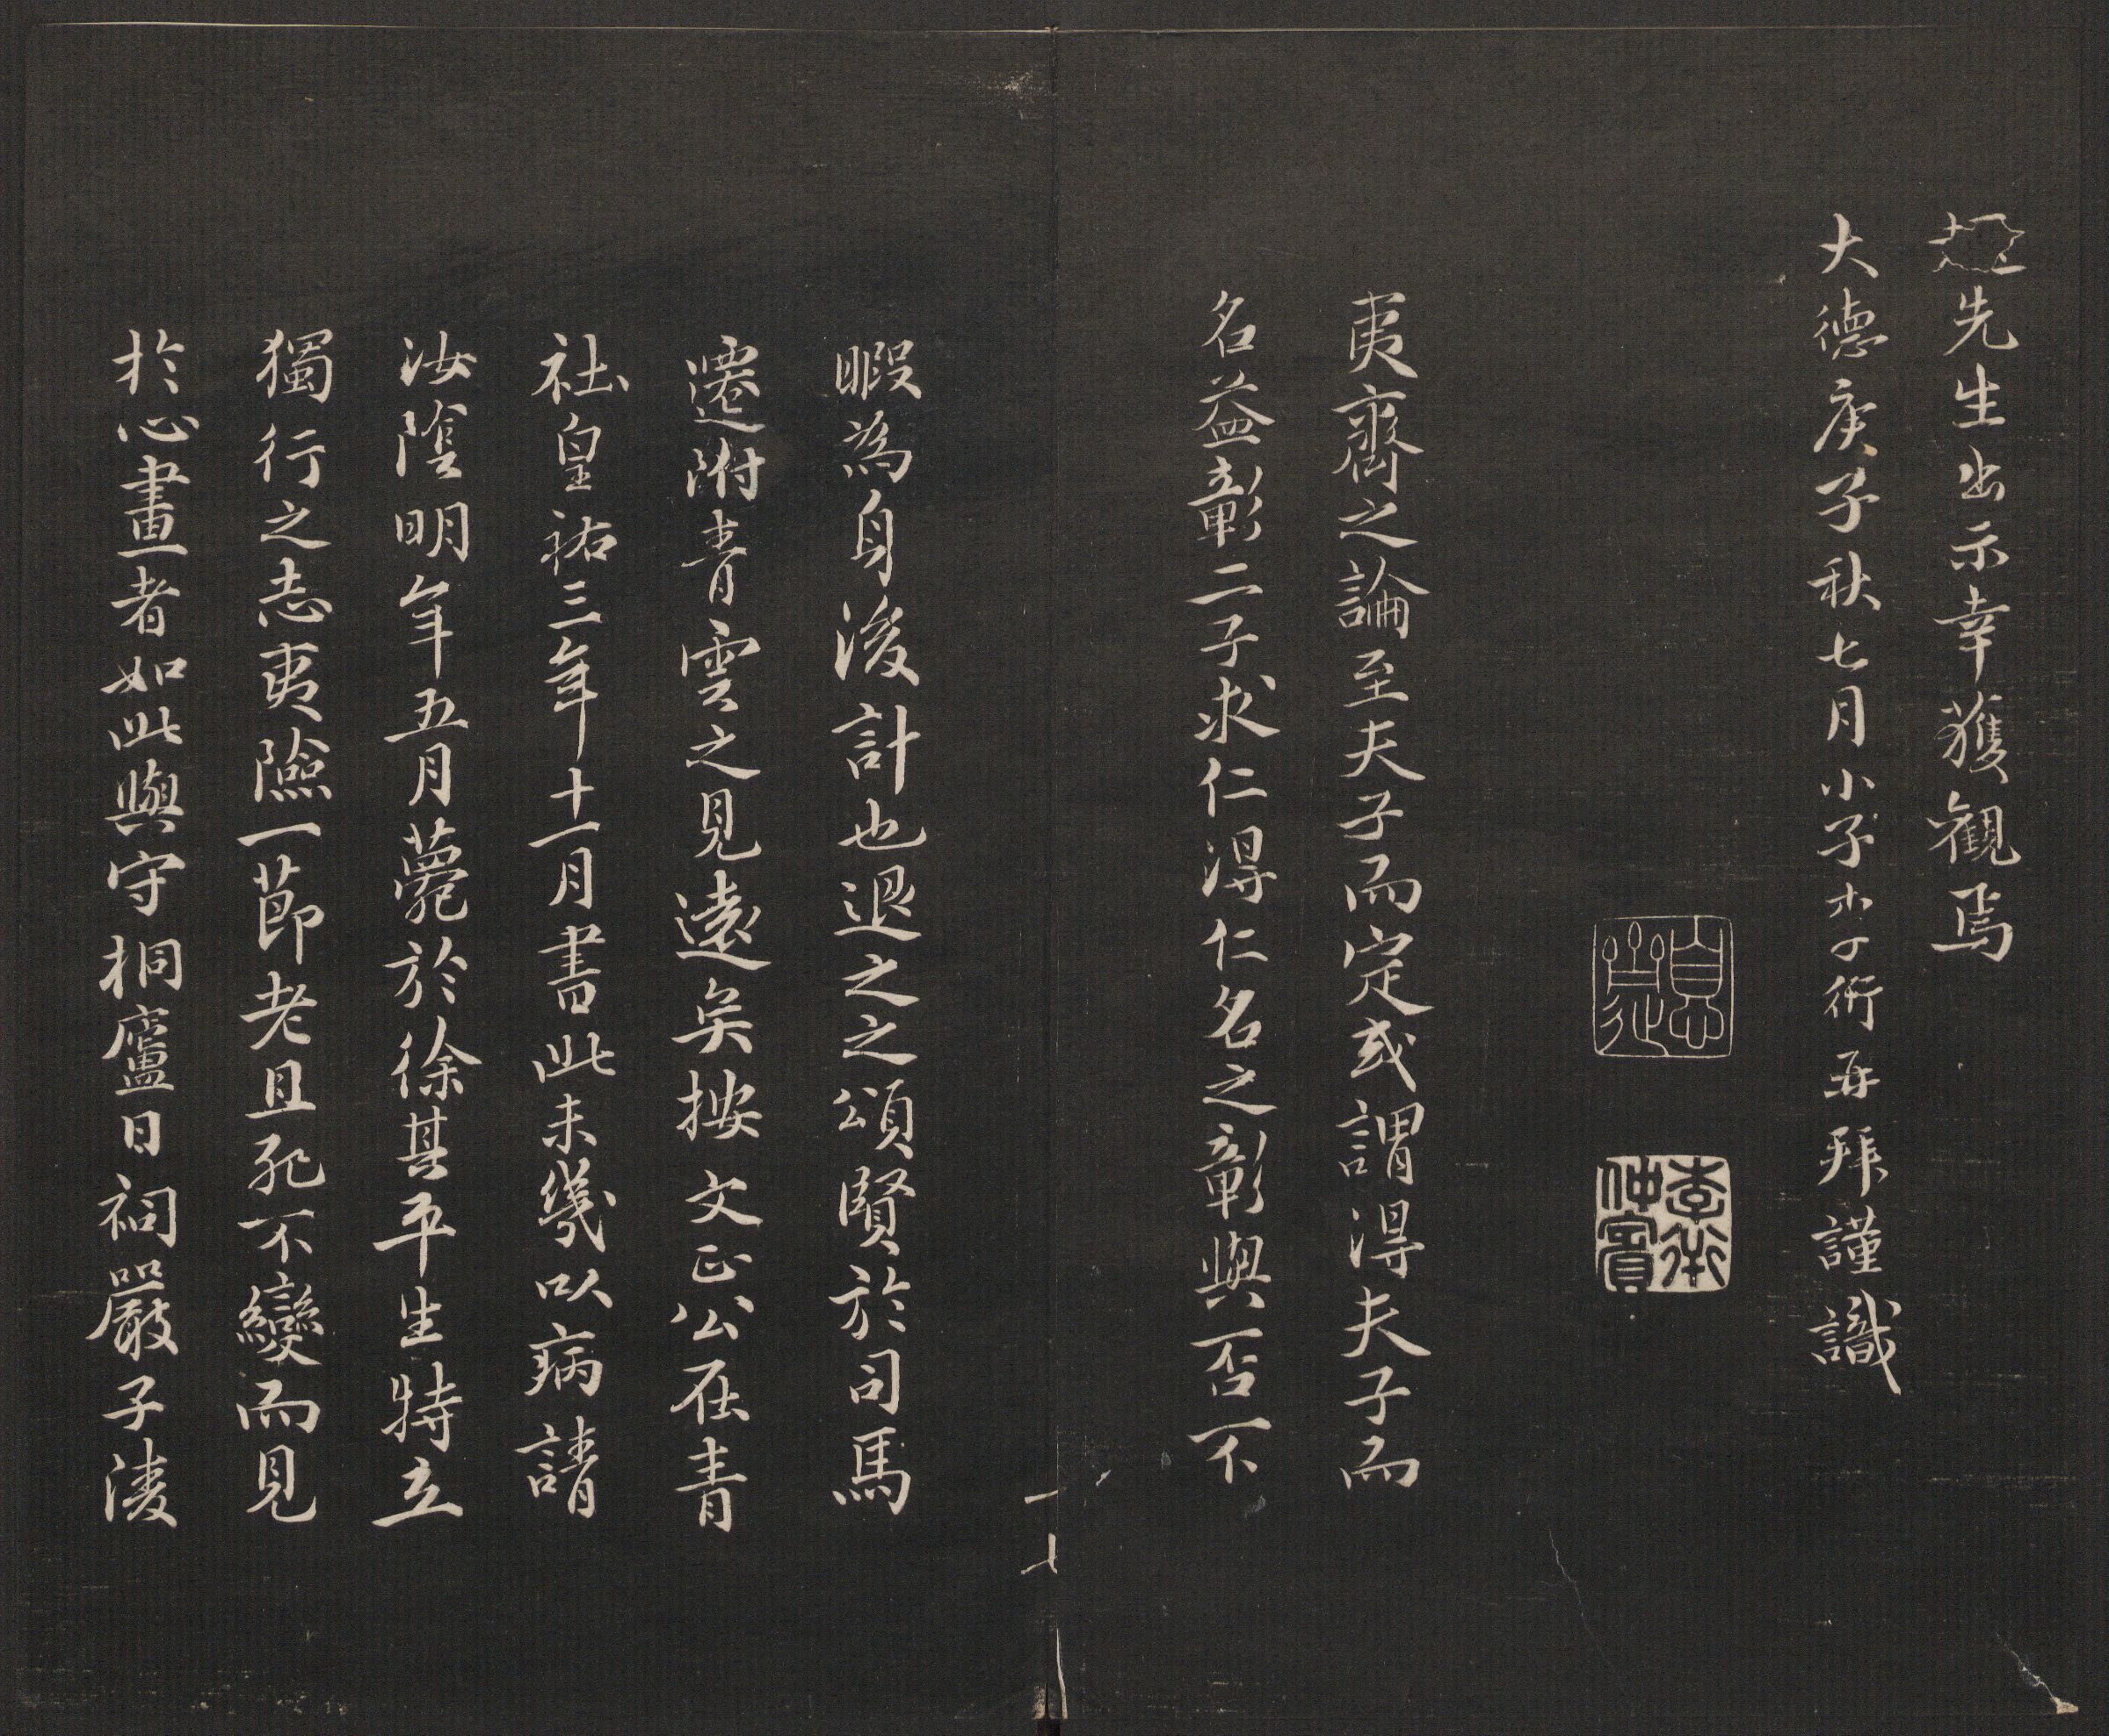 先生出示幸獲觀焉
大德庚子秋七月小子李衎再拜謹識
李衎仲賓
夷齊之論至夫子而定或謂得夫子而
名益彰二子求仁得仁名之彰與否不
暇為身後計也退之之頌賢於司馬
遷附青雲之見遠矣按文正公在青
社皇祐三年十一月書此未幾以病請
汝陰明年五月薨於徐其平生特立
獨行之志夷險一節老且死不變而見
於心畫者如此與守桐廬日祠嚴子陵